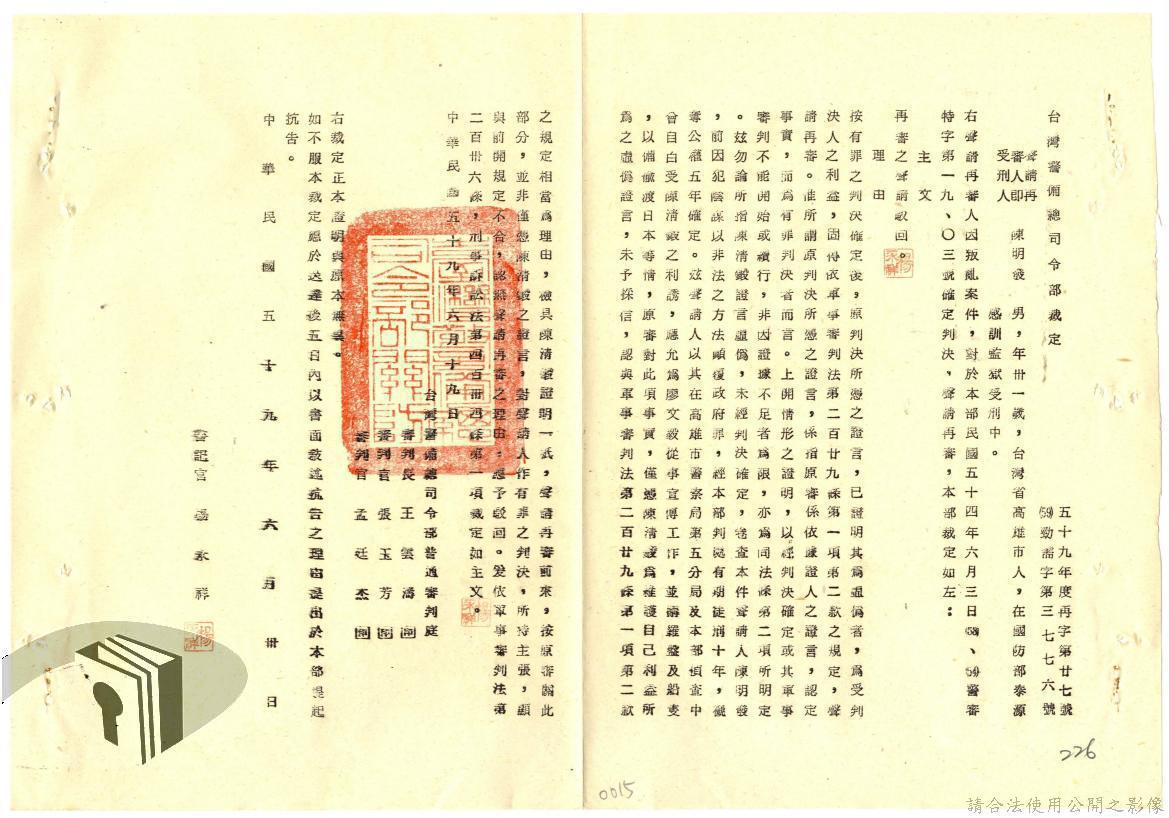 台灣警備總司令部裁定
五十九年度再字第廿七號
(59)勁需字第三七七六號
聲請再
審人即
受刑人
陳明發
男，年卅一歲，台灣省高雄市人，在國防部泰源
感訓監獄受刑中。
右聲請再審人因叛亂案件，對於本部民國五十四年六月三日(53)、(54)警審
特字第一九、〇三號確定判決，聲請再審，本部裁定如左：
主文
再審之聲請駁回。
理由
按有罪之判決確定後，原判決所憑之證言，已證明其為虛偽者，為受判
決人之利益，固得依軍事審判法第二百廿九條第一項第二款之規定，聲
請再審。惟所謂原判決所憑之證言，係指原審係依據證人之證言，認定
事實，而為有罪判決者而言。上開情形之證明，以經判決確定或其軍事
審判不能開始或續行，非因證據不足者為限，亦為同法條第二項所明定
。茲勿論所指陳清鍛證言虛偽，未經判決確定，卷查本件聲請人陳明發
，前因犯陰謀以非法之方法顛覆政府罪，經本部判處有期徒刑十年，褫
奪公權五年確定。茲聲請人以其在高雄市警察局第五分局及本部偵查中
曾自白受陳清鍛之利誘，應允為廖文毅從事宣傳工作，並購羅盤及船隻
，以備偷渡日本等情，原審對此項事實，僅憑陳清鍛為維護自己利益所
為之虛偽證言，未予採信，認與軍事審判法第二百廿九條第一項第二款
之規定相當為理由，檢具陳清鍛證明一紙，聲請再審前來，按原審關此
部分，並非僅憑陳清鍛之證言，對聲請人作有罪之判決，所持主張，顯
與前開規定不合，認無聲請再審之理由，應予駁回。爰依軍事審判法第
二百卅六條，刑事訴訟法第四百卅四條第一項裁定如主文。
中華民國五十九年六月十九日
台灣警備總司令部普通審判庭
審判長 王雲濤
審判官 張玉芳
審判官 孟廷杰
右裁定正本證明與原本無異。
如不服本裁定應於送達後五日內以書面敘述抗告之理由提出於本部提起
抗告。
中華民國五十九年六月卅日
書記官 楊永祥
226
0015
請合法使用公開之影像